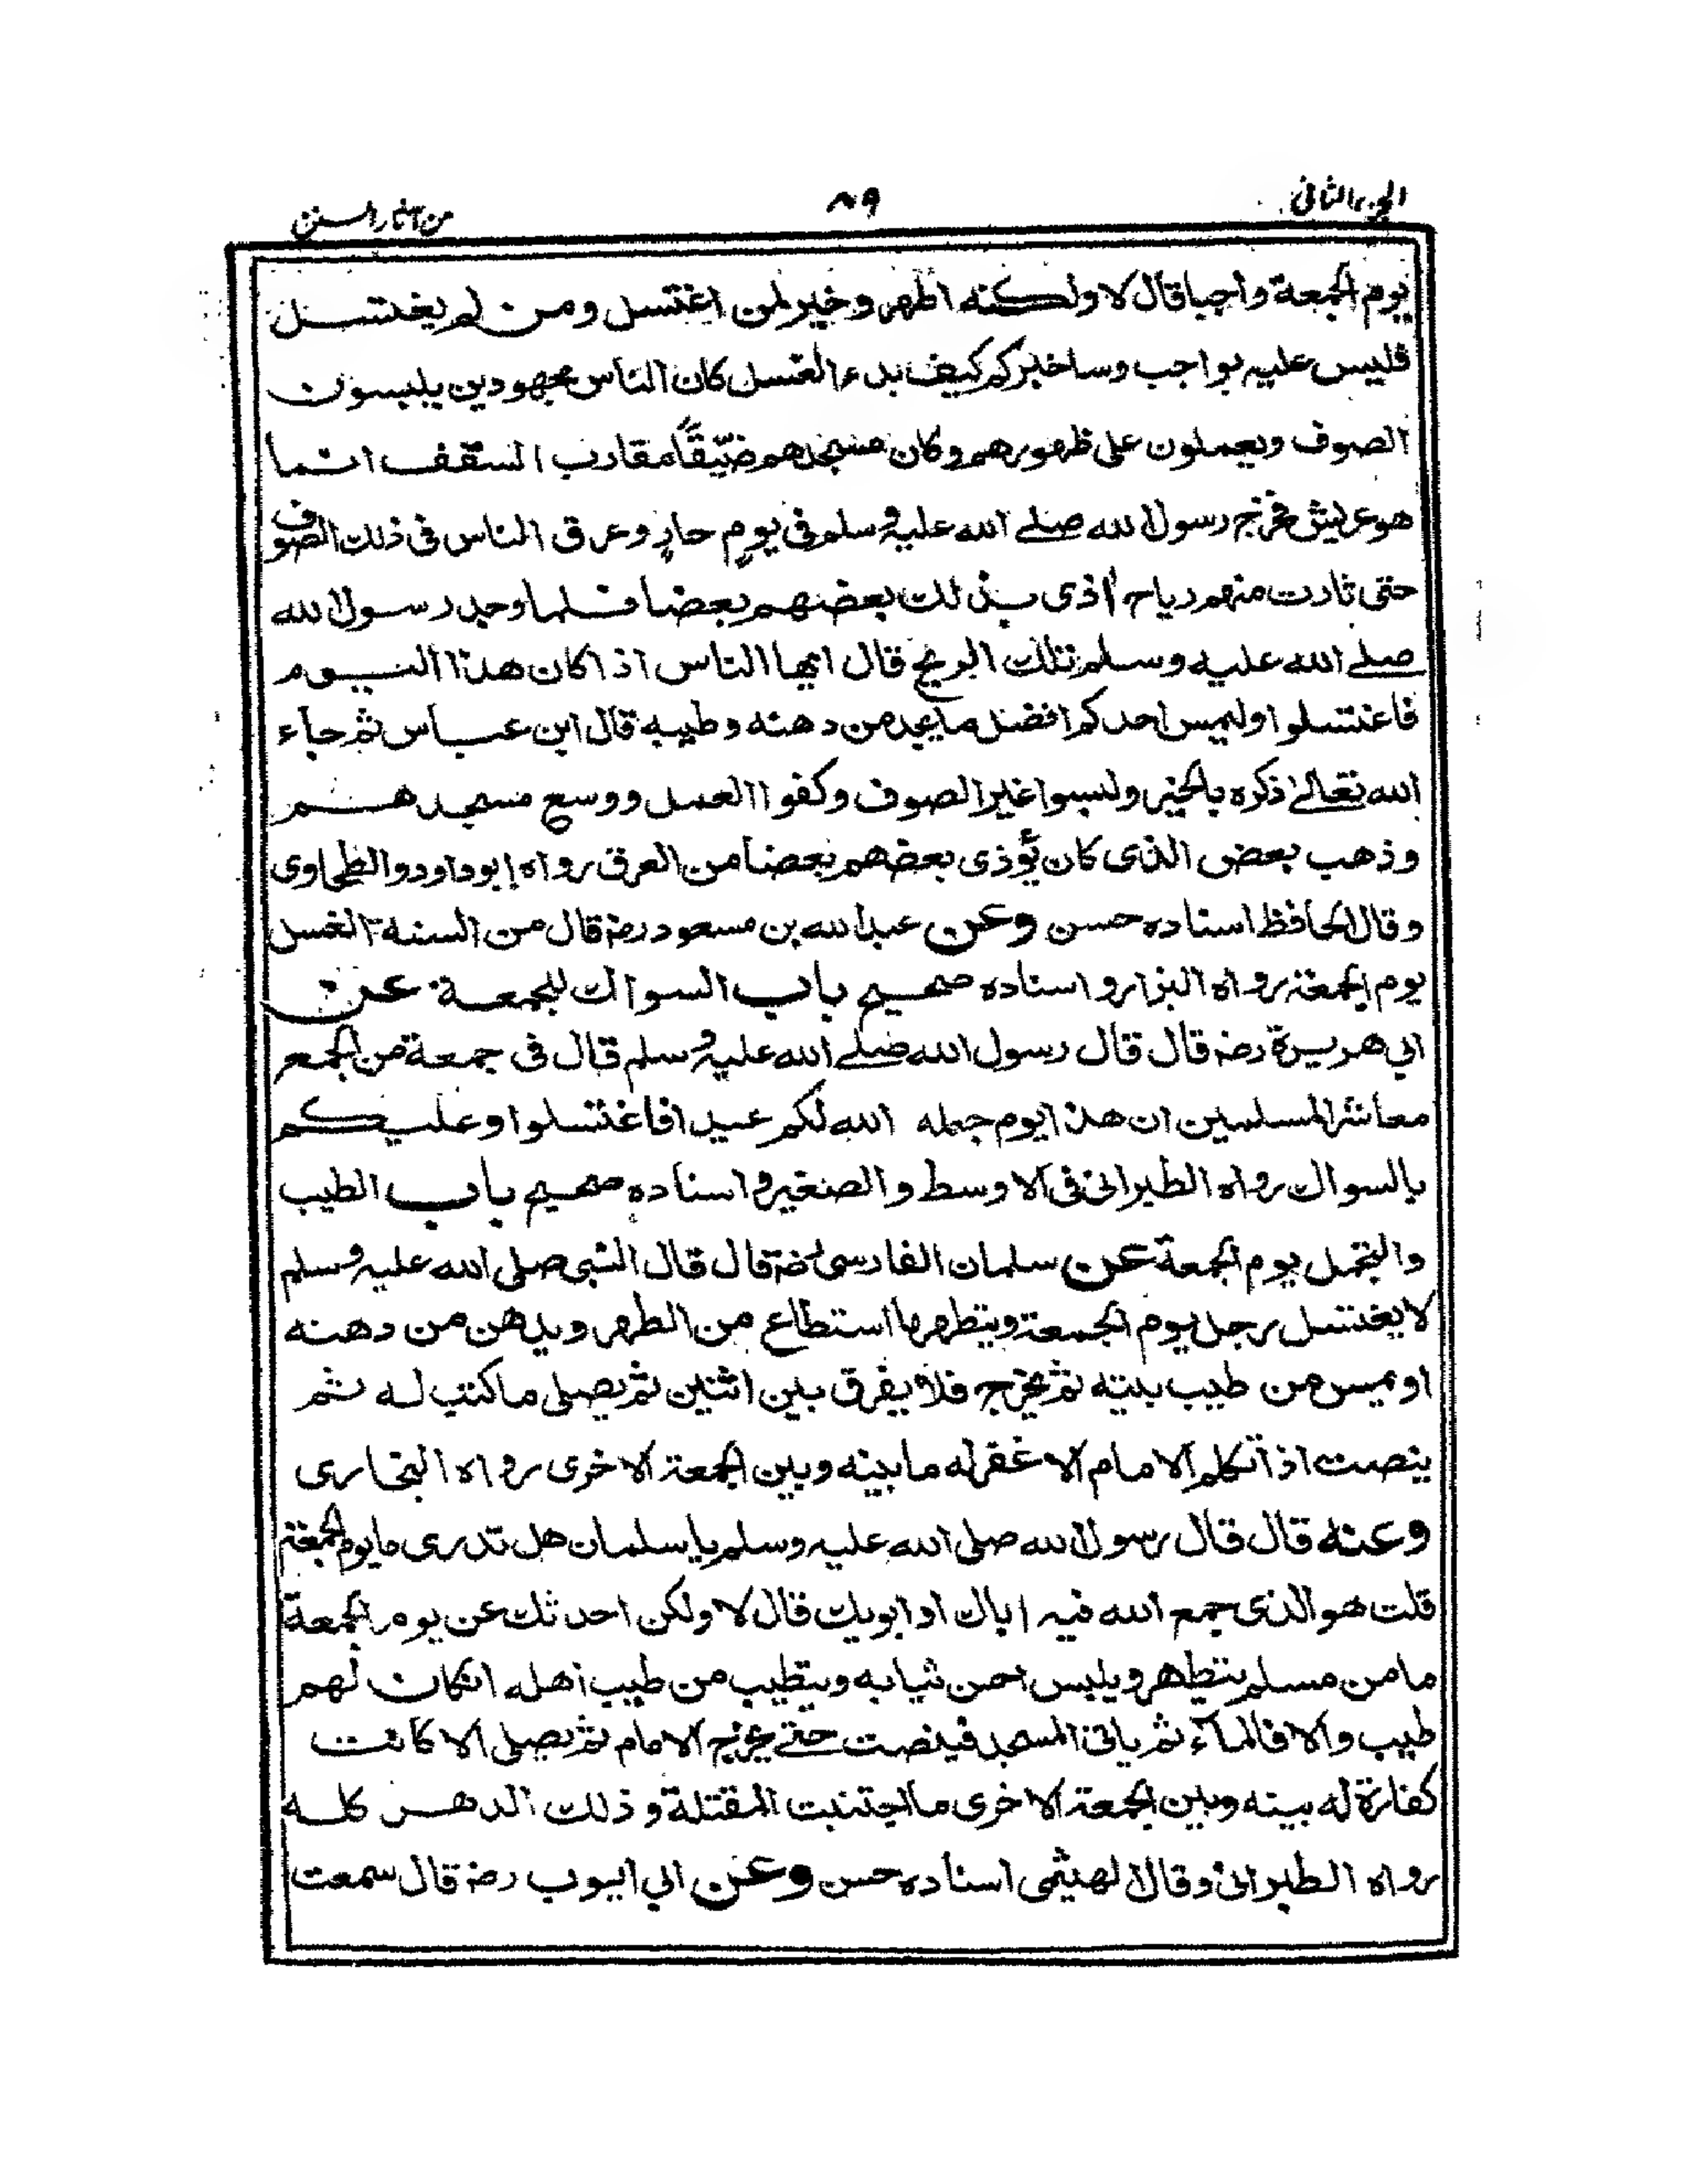 الجزء الثاني
٨٩
من آثار السنن
يوم الجمعة واجبا قال لا ولكنه اطهر وخير لمن اغتسل ومن لم يغتسل
فليس عليه بواجب وساخبركم كيف بدء الغسل كان الناس مجهودين يلبسون
الصوف ويعملون على ظهورهم وكان مسجدهم ضيّقًا مقارب السقف انما
هو عريش فخرج رسول الله صلے الله عليه وسلم في يومٍ حارٍ وعرق الناس في ذلك الصوف
حتى ثارت منهم رياح اذى بذلك بعضهم بعضا فلما وجد رسول الله
صلے الله عليه وسلم تلك الريح قال ايها الناس اذا كان هذا اليوم
فاغتسلوا وليمس احدكم افضل ما يجد من دهنه وطيبه قال ابن عباس ثم جاء
الله تعالىٰ ذكره بالخير ولبسوا غير الصوف وكفوا العمل ووسع مسجدهم
وذهب بعض الذى كان يؤذى بعضهم بعضا من العرق رواه ابو داود والطحاوى
وقال الحافظ اسناده حسن وعن عبد الله بن مسعود رضـ قال من السنة الغسل
يوم الجمعة رواه البزار واسناده صحيح باب السواك للجمعة عن
ابي هريرة رضـ قال قال رسول الله صلے الله عليه وسلم قال في جمعة من الجمع
معاشر المسلمين ان هذا يوم جعله الله لكم عيدا فاغتسلوا وعليكم
بالسواك رواه الطبرانى فى الاوسط والصغير واسناده صحيح باب الطيب
والتجمل يوم الجمعة عن سلمان الفارسى رضـ قال قال النبى صلى الله عليه وسلم
لا يغتسل رجل يوم الجمعة ويتطهر ما استطاع من الطهر ويدهن من دهنه
او يمس من طيب بيته ثم يخرج فلا يفرق بين اثنين ثم يصلى ما كتب له ثم
ينصت اذا تكلم الامام الا غفر له ما بينه وبين الجمعة الاخرى رواه البخارى
وعنه قال قال رسول الله صلى الله عليه وسلم يا سلمان هل تدرى ما يوم الجمعة
قلت هو الذى جمع الله فيه اباك او ابويك قال لا ولكن احدثك عن يوم الجمعة
ما من مسلم يتطهر ويلبس احسن ثيابه ويتطيب من طيب اهله ان كان لهم
طيب والا فالماء ثم ياتى المسجد فينصت حتے يخرج الامام ثم يصلى الا كانت
كفارة له بينه وبين الجمعة الاخرى ما اجتنبت المقتلة وذلك الدهر كله
رواه الطبرانى وقال الهيثمى اسناده حسن وعن ابي ايوب رضـ قال سمعت